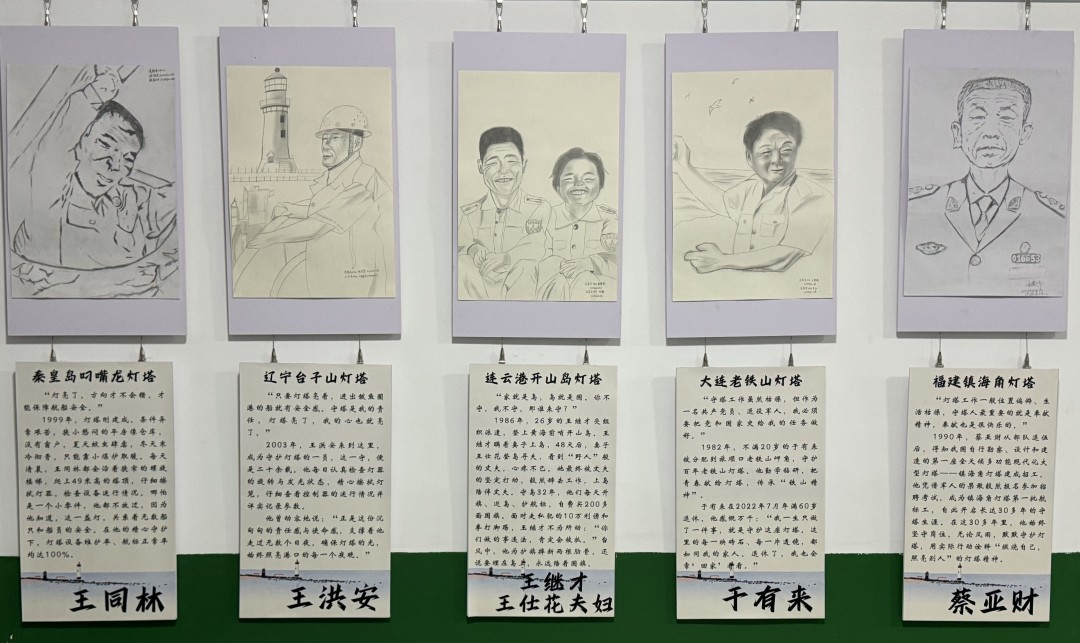 秦皇岛叼嘴龙灯塔
“灯亮了，方向才不会错，才
能保障航船安全。”
1999年，灯塔刚建成，条件异
常艰苦，狭小憋闷的平房像仓库，
没有窗户，夏天蚊虫肆虐，冬天来
冷彻骨，只能靠小煤炉取暖。每天
清晨，王同林都会沿着狭窄的螺旋
楼梯，爬上49米高的塔顶，仔细擦
拭灯器，检查设备运行情况，哪怕
是一个小零件，他都不放过，因为
他知道，这一盏灯，关系着无数船
只和船员的安全。在他的精心守护
下，灯塔设备维护率、航标正常率
均达100%。
王同林
辽宁台子山灯塔
“只要灯塔亮着，进出鲅鱼圈
港的船就有安全感，守塔是我的责
任，灯塔亮了，我的心也就亮
了。”
2003年，王洪安来到这里，
成为守护灯塔的一员，这一守，便
是二十余载，他每日认真检查灯器
的旋转与发光状态，精心擦拭灯
笼，仔细查看控制器的运行情况并
详实记录参数。
他曾动家地说：“正是这份沉
甸甸的责任感与使命感，支撑着他
走过无数个日夜，确保灯塔的光，
始终照亮港口的每一个夜晚。”
王洪安
连云港开山岛灯塔
“家就是岛，岛就是国，你不
守，我不守，那谁来守？”
1986年，26岁的王继才受组
织派遣，登上黄海前哨开山岛，王
继才瞒着妻子上岛，48天后，妻子
王仕花登岛寻夫，看到“野人”般
的丈夫，心疼不已，她最终被丈夫
的坚定打动，毅然辞去工作，上岛
陪伴丈夫。守岛32年，他们每天升
旗、巡岛、护航标，自费买200多
面国旗，面对走私犯的10万利诱和
拳打脚踢，王继才不为所动：“你
们做的事违法，肯定会被抓。”台
风中，他为护旗摔断两根肋骨，还
说要埋在岛上，永远陪着国旗。
王继才
王仕花夫妇
大连老铁山灯塔
“守塔工作虽然枯燥，但作为
一名共产党员、退役军人，我必须
要把党和国家交给我的任务做
好。”
1982年，不满20岁的于有来
被分配到旅顺口老铁山岬角，守护
百年老铁山灯塔，他勤学钻研，把
青春献给灯塔，传承“铁山精
神”。
于有来在2022年7月年满60岁
退休，他感慨万千：“我一生只做
了一件事，就是守护这座灯塔，这
里的每一块砖石、每一片透镜，都
如同我的家人，退休了，我也会
常‘回家’看看。”
于有来
福建镇海角灯塔
“灯塔工作一般位置偏僻、生
活枯燥，守塔人最重要的就是奉献
精神，奉献也是很快乐的。”
1990年，蔡亚财从部队退伍
后，得知我国自行勘察、设计和建
造的第一座全天候多功能现代化大
型灯塔——镇海角灯塔建成招工，
他凭借军人的果敢毅然报名参加招
聘考试，成为镇海角灯塔第一批航
标工，自此开启长达30多年的守
塔生涯。在这30多年里，他始终
坚守岗位，无论风雨，默默守护灯
塔，用实际行动诠释“燃烧自己，
照亮别人”的灯塔精神。
蔡亚财